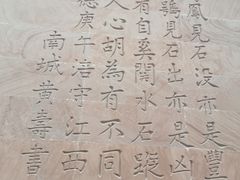 鳳見石没亦是豐
鶚見石出亦是凶
有自奚關水石蹤
人心胡為有不同
德庚午涪守江西
南城黄壽書